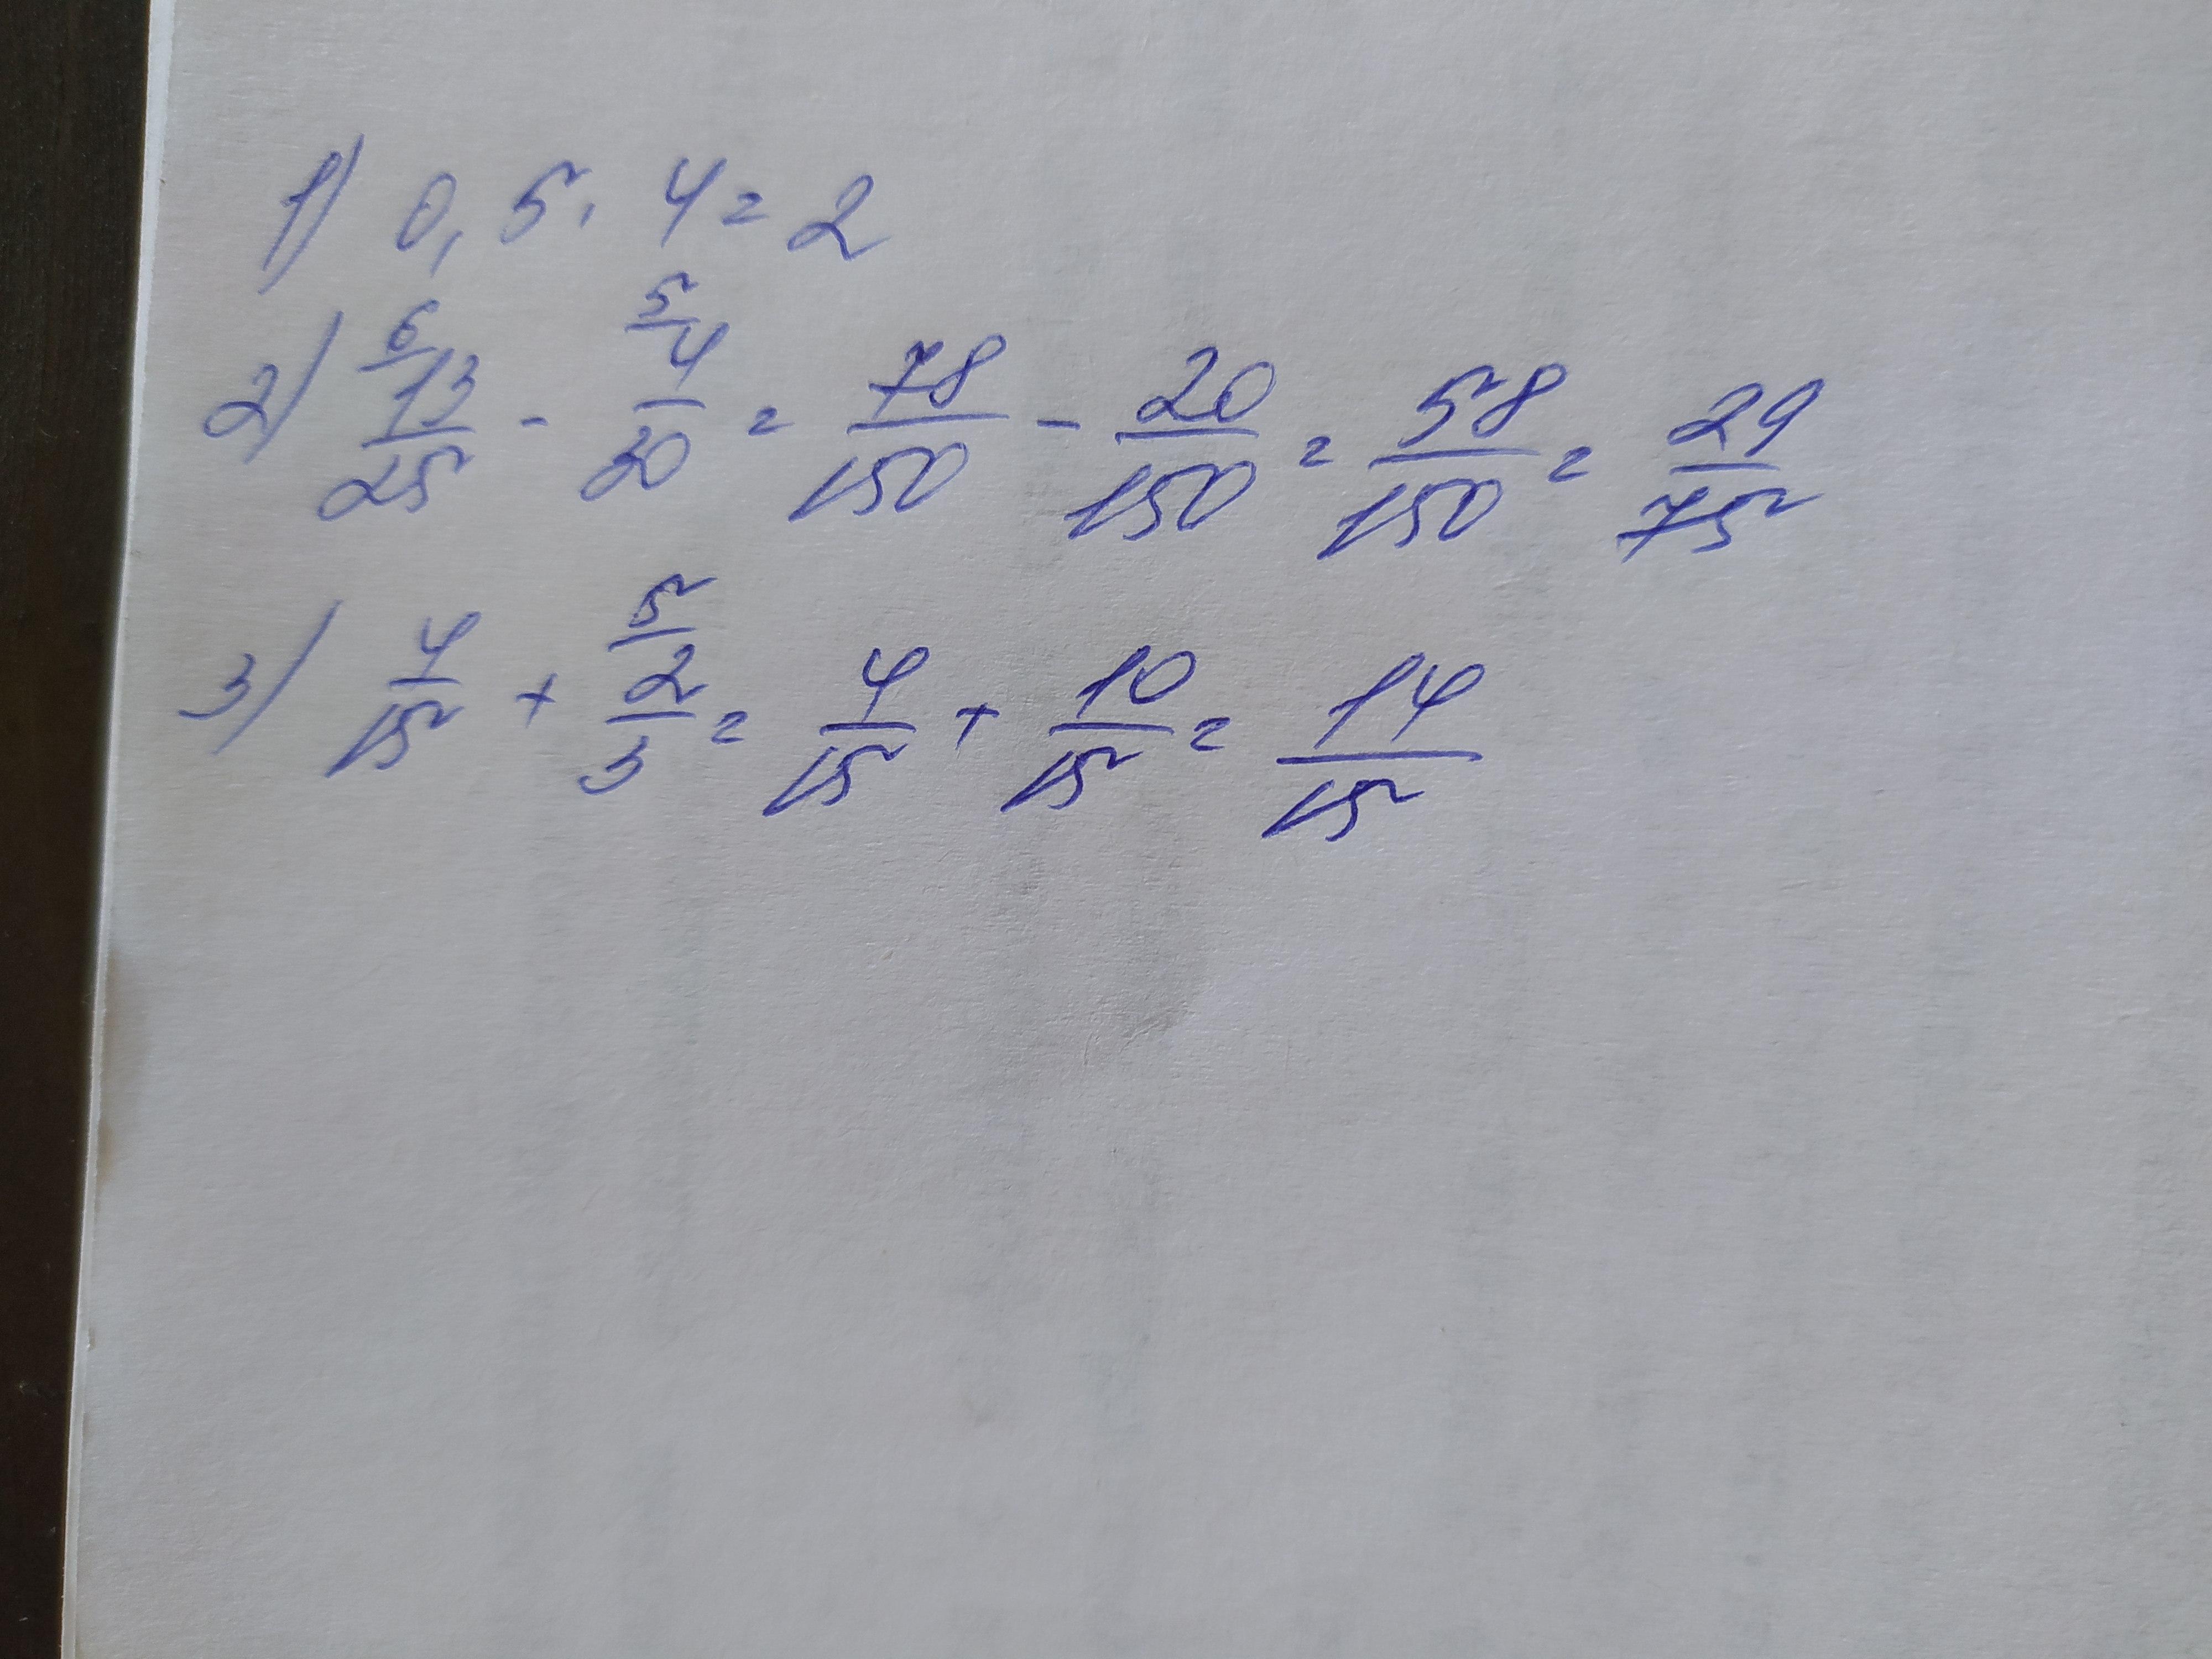 1) 0,5 · 4 = 2
2) 6/ 13/25 - 5/ 4/30 = 78/150 - 20/150 = 58/150 = 29/75
3) 4/15 + 5/ 2/3 = 4/15 + 10/15 = 14/15